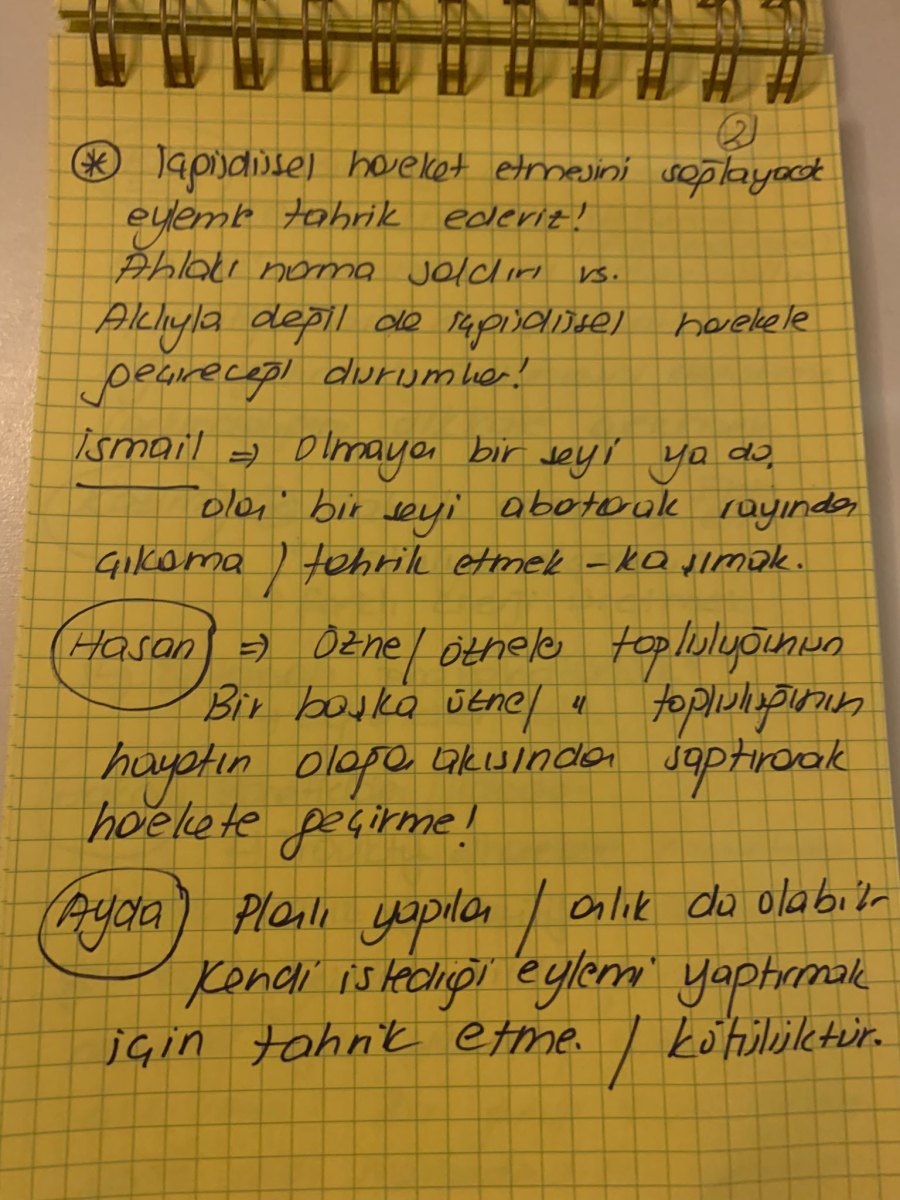 ②
* İçgüdüsel hareket etmesini sağlayacak
eyleme tahrik ederiz!
Ahlaki norma saldırı vs.
Aklıyla değil de içgüdüsel harekete
geçireceği durumlar!
ismail => Olmayan bir şeyi ya da
olan bir şeyi abartarak rayından
çıkarma / tahrik etmek - kaşımak.
Hasan => Özne/özneler topluluğunun
Bir başka özne/ " topluluğunun
hayatın olağan akışından saptırarak
harekete geçirme!
Ayda Planlı yapılan / anlık da olabilir
Kendi istediği eylemi yaptırmak
için tahrik etme. / kötülüktür.